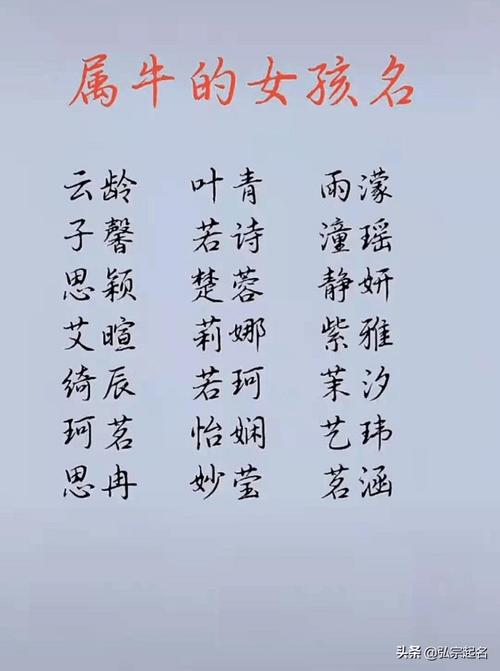 属牛的女孩名
云龄 叶青 雨濛
子馨 若诗 潼瑶
思颖 楚蓉 静妍
艾暄 莉娜 紫雅
绮辰 若珂 茉汐
珂茗 怡娴 艺玮
思冉 妙莹 茗涵
头条 @弘宗起名